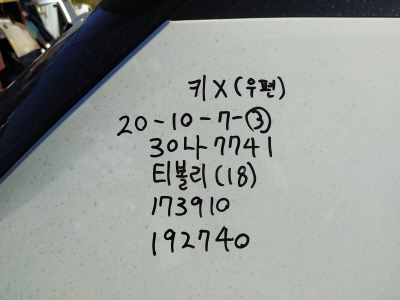 키X(우편)
20-10-7-③
30나7741
티볼리(18)
173910
192740